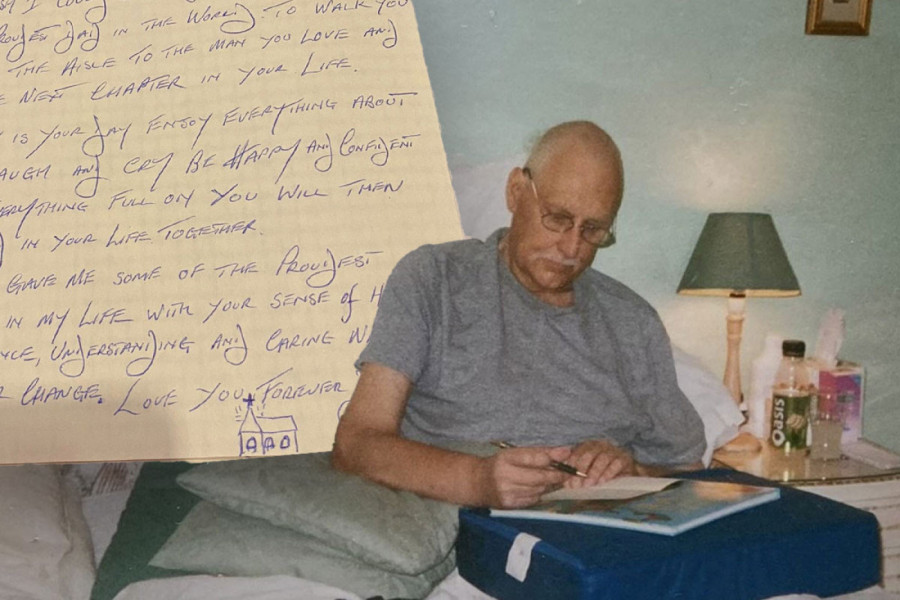 I COULD
PROUDEST DAD IN THE WORLD. TO WALK YOU
THE AISLE TO THE MAN YOU LOVE AND
NEXT CHAPTER IN YOUR LIFE.
IS YOUR DAY ENJOY EVERYTHING ABOUT
LAUGH AND CRY BE HAPPY AND CONFIDENT
EVERYTHING FULL ON YOU WILL THEN
IN YOUR LIFE TOGETHER.
GAVE ME SOME OF THE PROUDEST
IN MY LIFE WITH YOUR SENSE of H
UNDERSTANDING AND CARING W
CHANGE. LOVE YOU FOREVER
Oasis